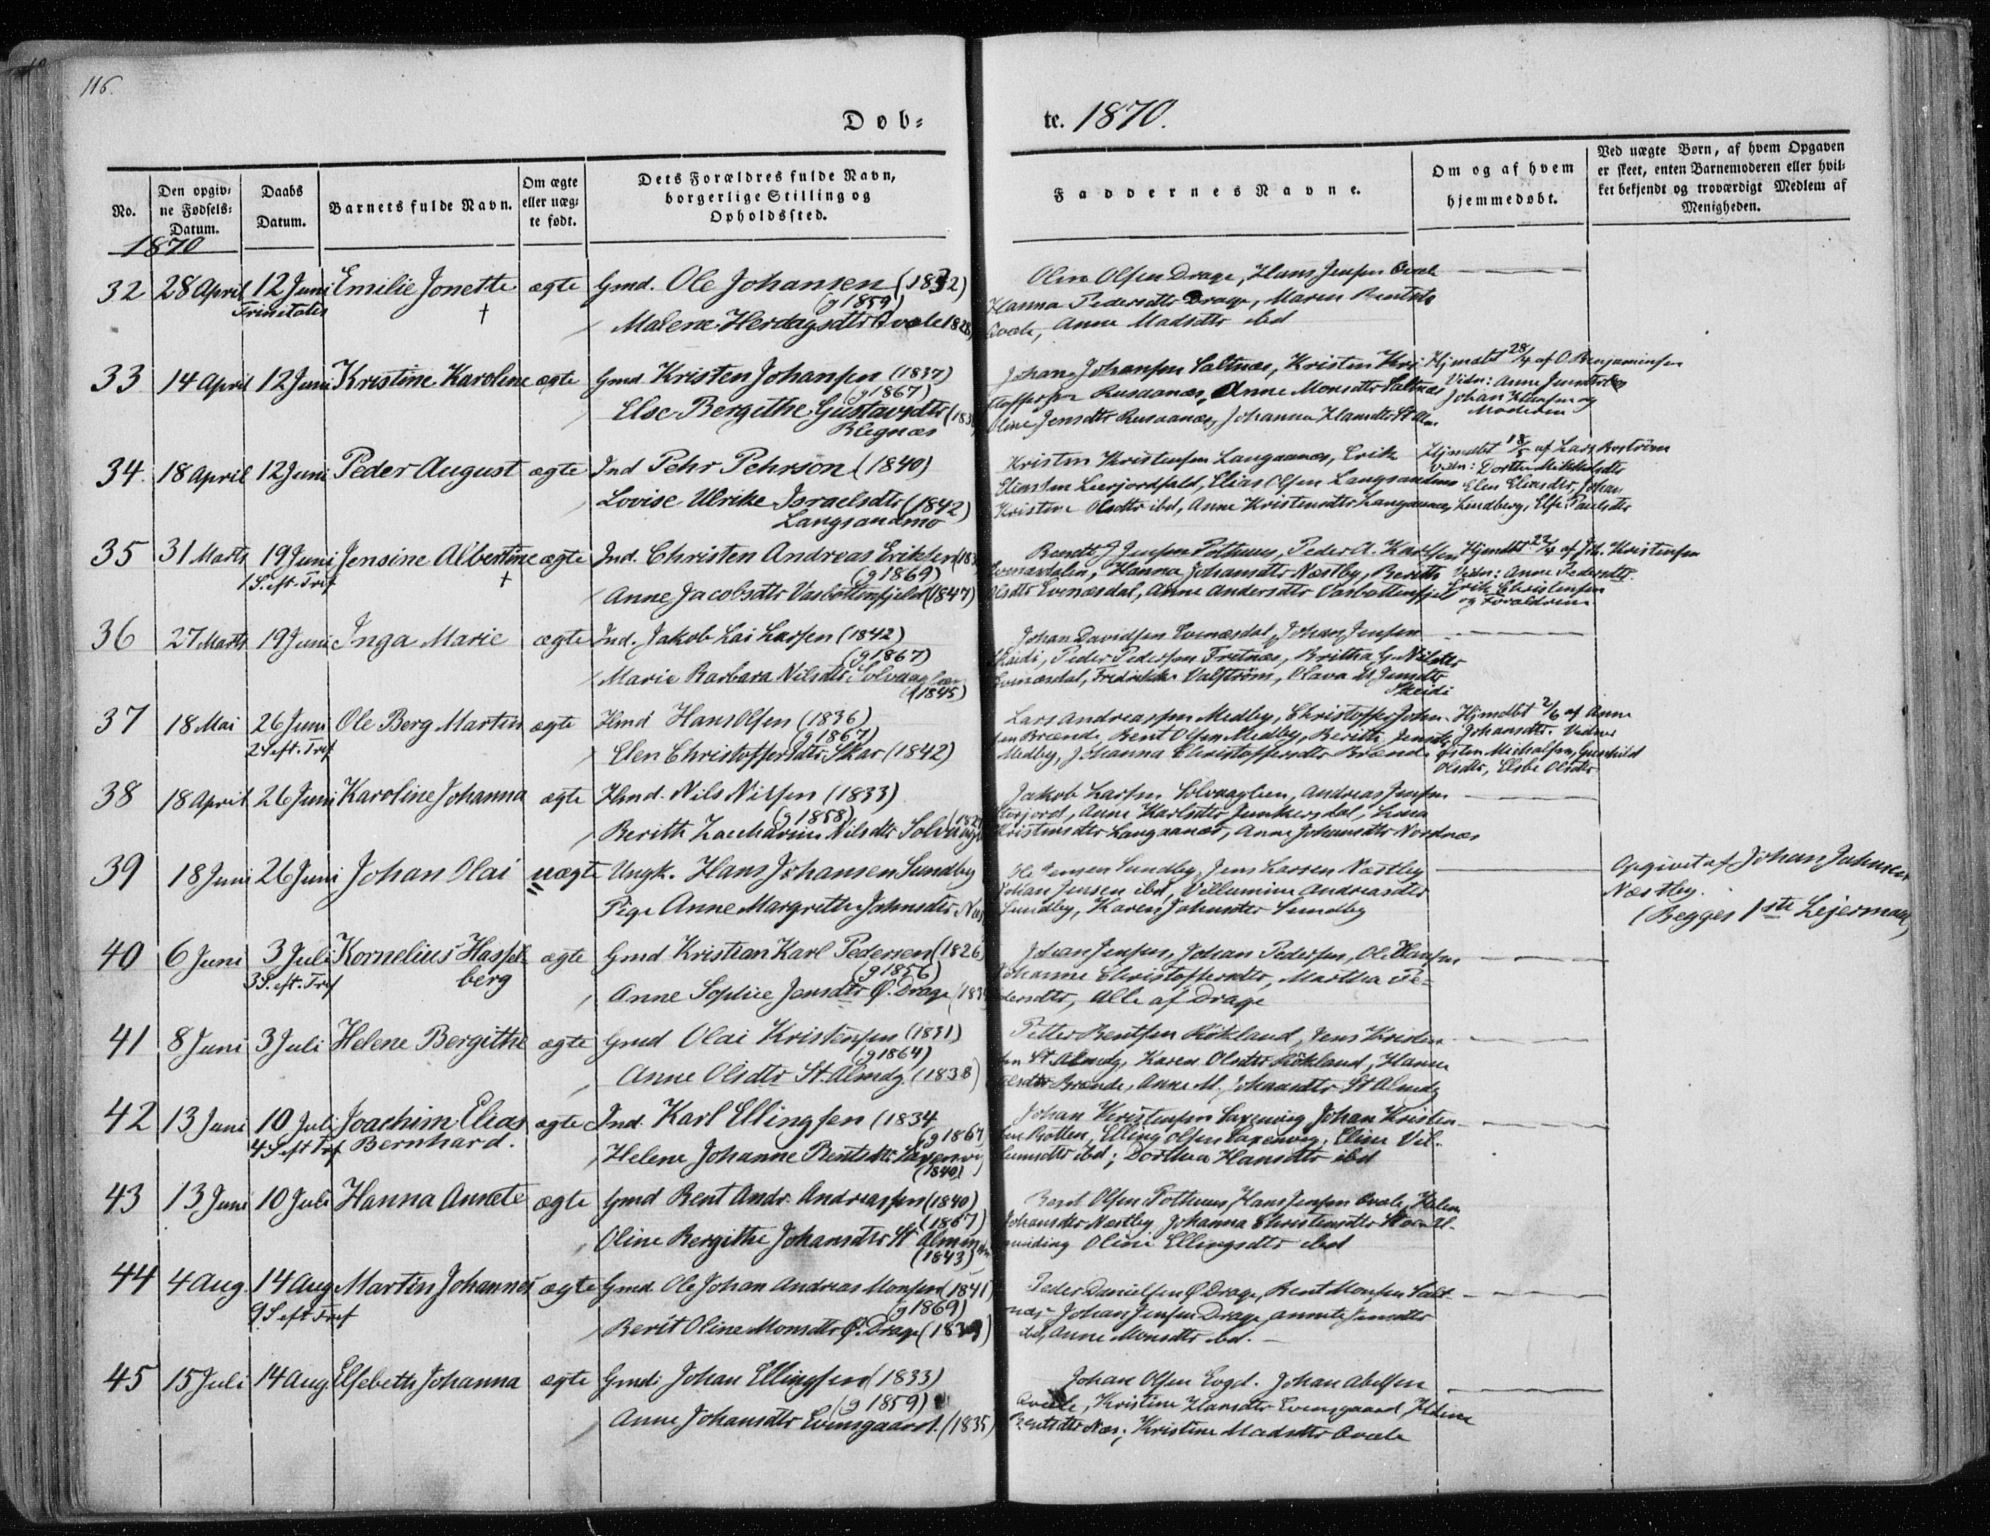 116.
Døb-
te. 1870.
No.
Den opgiv-
ne Fødsels-
Datum.
Daabs
Datum.
Barnets fulde Navn.
Om ægte
eller uæg-
te født.
Dets Forældres fulde Navn,
borgerlige Stilling og
Opholdssted.
Faddernes Navne.
Om og af hvem
hjemmedøbt.
Ved uægte Børn, af hvem Opgaven
er skeet, enten Barnemoderen eller hvil-
ket bekjendt og troværdigt Medlem af
Menigheden.
1870
32 28 April 12 Juni Emilie Jonette ægte Gmd. Ole Johansen (1832)
Trinitatis † (g 1859)
Malena Herdagsdtr Qvale 1828
Olina Olsen Drage, Hans Jensen Qvale
Hanna Pedersdtr Drage, Maren Bentsdtr
Qvale, Anne Madsdtr ibd
33 14 April 12 Juni Kristine Karoline ægte Gmd Kristen Johansen (1837)
(g 1867)
Else Bergithe Gustavsdtr (183
Blegnæs
Johan Johansen Saltnæs, Kristen Kri-
stoffersen Rusaanæs, Anne Monsdtr Saltnæs
Oline Jensdtr Rusaanæs, Johanna Hansdtr St Alm
Hjmdbt 28/4 af O. Benjaminsen
Vidn: Anne Jensdtr
Johan Hansen og
Moderen
34. 18 April 12 Juni Peder August ægte Ind Pehr Pehrson (1840)
Lovise Ulrike Israelsdtr (1842)
Langsandmo
Kristen Kristensen Langaanæs, Erik
Eliassen Leirjordfald, Elias Olsen Langsandmo
Kristine Olsdtr ibd, Anne Kristensdtr Langaanæs
Hjmdbt 18/5 af Lars Boström
Vidn: Dorthe Mikkelsdtr
Elen Eliasdtr, Johan
Lindberg, Else Paulsdtr
35 31 Marts 19 Juni Jensine Albertine ægte Ind. Christen Andreas Eriksen (18
1 S. eft. Tref † (g 1869)
Anne Jacobsdtr Vasbottenfjeld (1847)
Bendt J Jensen Pothuus, Peder A. Karlsen
Evenæsdalen, Hanna Johansdtr Næstby, Berith
Olsdtr Evenæsdal, Anne Andersdtr Vasbottenfjeld
Hjmdbt 22/4 af Joh. Kristensen
Vidn: Anne Pedersdtr.
Erik Christensen
og Forældrene
36 27 Marts 19 Juni Inga Marie ægte Ind. Jakob Lai Larsen (1842)
(g 1867)
Marie Barbara Nilsdtr, Solvaaglien
(1845)
Johan Davidsen Evenæsdal, Johan Jensen
Skeidi, Peder Pedersen Fretnæs, Britha G. Nilsdtr
Evenæsdal, Fredrikke Valström, Olava M. Jensdtr
Skeidi
37 18 Mai 26 Juni Ole Berg Martin ægte Hmd Hans Olsen (1836)
2 S. eft. Tref (g 1867)
Elen Christoffersdtr Skar (1842)
Lars Andreassen Medby, Christoffer Johan-
sen Brænde, Bent Olsen Medby, Berith Jensdtr
Medby, Johanna Christoffersdtr Brænde
Hjmdbt 2/6 af Anne
Johansdtr. Vidner
Osten Michalsen, Gunhild
Olsdtr, Elsbe Olsdtr
38 18 April 26 Juni Karoline Johanna ægte Hmd. Nils Nilsen (1833)
(g 1858)
Berith Zacharine Nilsdtr Solvaagl
Jakob Larsen Solvaaglien, Andreas Jensen
Storjord, Anne Karlsdtr Junkersdal, Lina
Kristensdtr Langaanæs, Anne Johansdtr Nordnæs
39 18 Juni 26 Juni Johan Olai uægte Ungk. Hans Johansen Sundby
Pige Anne Margrethe Johnsdtr Næs
Ole Jensen Sundby, Jens Larsen Næstby
Johan Jensen ibd, Villumine Andreasdtr
Sundby, Karen Johnsdtr Sundby
Opgivet af Johan Johnsen
Næstby.
(Begges 1ste Lejermaal)
40 6 Juni 3 Juli Kornelius Hassel- ægte Gmd Kristian Karl Pedersen (1826)
3 S. eft. Tref berg (g 1856)
Anne Sophie Jensdtr Ø. Drage (183
Johan Jensen, Johan Pedersen, Ole Hansen
Johanne Christoffersdtr, Martha Pe-
dersdtr, Alle af Drage
41 8 Juni 3 Juli Helene Bergithe ægte Gmd Olai Kristensen (1831)
(g 1864)
Anne Olsdtr St. Almdg (1838)
Petter Bentsen Rökland, Jens Kristen-
sen St Almdg, Karen Olsdtr Rökland, Hanna
Olsdtr Brænde, Anne M. Johansdtr St Almdg
42 13 Juni 10 Juli Joachim Elias ægte Ind. Karl Ellingsen (1834
4 S eft Tref Bernhard. (g 1867
Helene Johanne Bentsdtr Saxenvi
(1840)
Johan Kristensen Saxenvig Johan Kristen-
sen Botten, Elling Olsen Saxenvig, Eline Vil-
lumsdtr ibd; Dorthea Hansdtr ibd
43 13 Juni 10 Juli Hanna Annete ægte Gmd Bent Andr. Andreassen (1840)
(1867)
Oline Bergithe Johansdtr St Almind
(1843)
Bent Olsen Pothuus, Hans Jensen Qvale, Helena
Johansdtr Næstby, Johanna Christensdtr Store Al-
minding Oline Ellingsdtr ibd
44 4 Aug. 14 Aug Martin Johannes ægte Gmd. Ole Johan Andreas Monsen (1841)
9 S eft Tref (g 1869)
Berit Oline Monsdtr Ø. Drage (1839)
Peder Danielsen Ø Drage, Bent Monsen Salt-
næs, Johan Jensen Drage, Annete Jensdtr
ibd, Anne Monsdtr ibd. -
45 15 Juli 14 Aug. Elsebeth Johanna ægte Gmd: Johan Ellingsen (1833)
(g 1859)
Anne Johansdtr Evensgaard. (1835)
Johan Olsen Evgd. Johan Abelsen
Qvale, Kristine Hansdtr Evensgaard, Helene
Bentsdtr Næs; Kristine Madsdtr Qvale